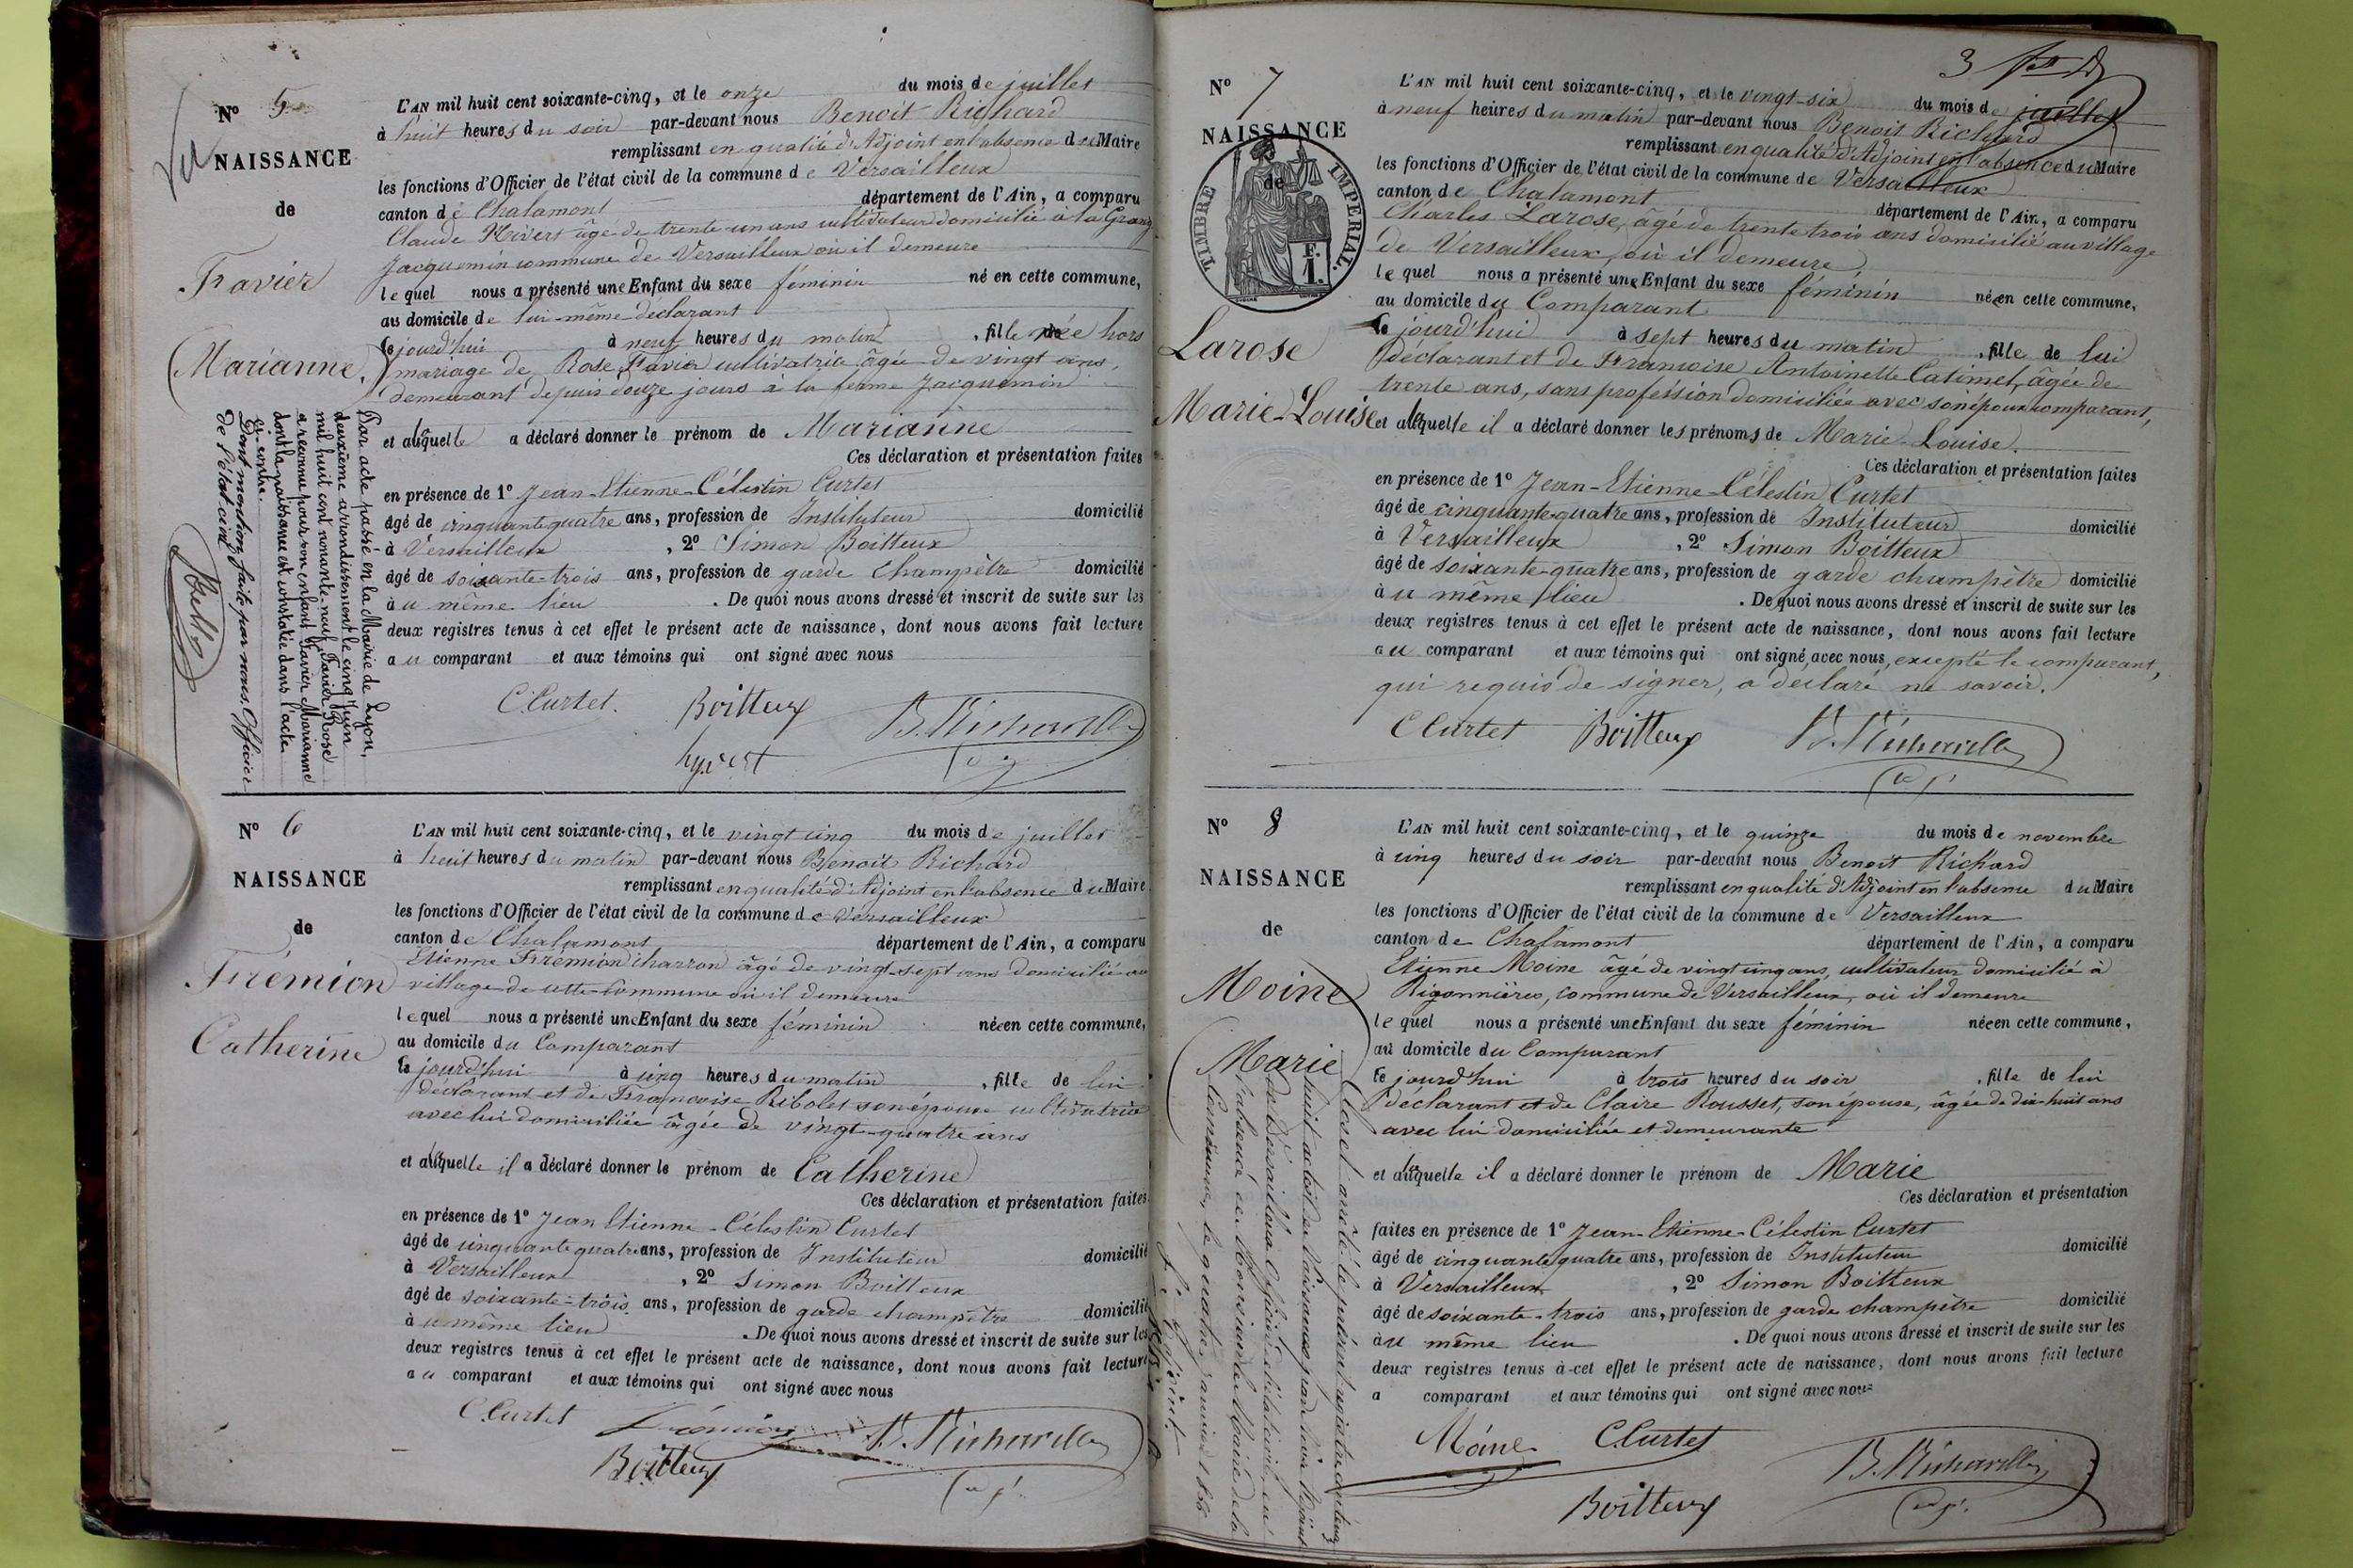 Vu
N° 5
NAISSANCE
de
Favier
Marianne
L'AN mil huit cent soixante-cinq, et le onze du mois de juillet
à huit heures du soir par-devant nous Benoit Richard
remplissant en qualité d'Adjoint en l'absence du Maire
les fonctions d'Officier de l'état civil de la commune de Versailleux
canton de Chalamont département de l'Ain, a comparu
Claude Hivert âgé de trente-un ans cultivateur domicilié à la Grange
Jacquemin commune de Versailleux où il demeure
lequel nous a présenté une Enfant du sexe féminin né en cette commune,
au domicile de lui-même déclarant
ce jourd'hui à neuf heures du matin, fille née hors
mariage de Rose Favier cultivatrice âgée de vingt ans,
demeurant depuis douze jours à la ferme Jacquemin
et à laquelle a déclaré donner le prénom de Marianne
Ces déclaration et présentation faites
en présence de 1° Jean-Etienne-Célestin Curtet
âgé de cinquante quatre ans, profession de Instituteur domicilié
à Versailleux, 2° Simon Boitteux
âgé de soixante-trois ans, profession de garde Champêtre domicilié
au même lieu. De quoi nous avons dressé et inscrit de suite sur les
deux registres tenus à cet effet le présent acte de naissance, dont nous avons fait lecture
au comparant et aux témoins qui ont signé avec nous
C. Curtet. Boitteux B. Richard
hyvert
Par acte passé en la Mairie de Lyon,
deuxième arrondissement le cinq Juin
mil huit cent nonante-neuf, Favier Rose
a reconnu pour son enfant Favier Marianne
dont la naissance est constatée dans l'acte
ci-contre.
Dont mention faite par nous, Officier
de l'état-civil
N° 6
NAISSANCE
de
Frémion
Catherine
L'AN mil huit cent soixante-cinq, et le vingt cinq du mois de juillet
à huit heures du matin par-devant nous Benoit Richard
remplissant en qualité d'Adjoint en l'absence du Maire
les fonctions d'Officier de l'état civil de la commune de Versailleux
canton de Chalamont département de l'Ain, a comparu
Etienne Frémion charron âgé de vingt-sept ans domicilié au
village de cette commune où il demeure
lequel nous a présenté une Enfant du sexe féminin née en cette commune,
au domicile du Comparant
ce jourd'hui à cinq heures du matin, fille de lui
déclarant et de Francoise Ribolet son épouse cultivatrice
avec lui domiciliée âgée de vingt-quatre ans
et à laquelle il a déclaré donner le prénom de Catherine
Ces déclaration et présentation faites
en présence de 1° Jean Etienne-Célestin Curtet
âgé de cinquante quatre ans, profession de Instituteur domicilié
à Versailleux, 2° Simon Boitteux
âgé de soixante-trois ans, profession de garde champêtre domicilié
au même lieu. De quoi nous avons dressé et inscrit de suite sur les
deux registres tenus à cet effet le présent acte de naissance, dont nous avons fait lecture
au comparant et aux témoins qui ont signé avec nous
C. Curtet Frémion B. Richard
Boitteux
3
N° 7
NAISSANCE
de
TIMBRE IMPERIAL.
F.
1.
Larose
Marie-Louise
L'AN mil huit cent soixante-cinq, et le vingt-six du mois de juillet
à neuf heures du matin par-devant nous Benoit Richard
remplissant en qualité d'Adjoint en l'absence du Maire
les fonctions d'Officier de l'état civil de la commune de Versailleux
canton de Chalamont département de l'Ain, a comparu
Charles Larose, âgé de trente trois ans domicilié au village
de Versailleux, où il demeure,
lequel nous a présenté une Enfant du sexe féminin née en cette commune,
au domicile du Comparant
ce jourd'hui à sept heures du matin, fille de lui
déclarant et de Francoise Antoinette Catimel, âgée de
trente ans, sans profession domiciliée avec son époux comparant,
et à laquelle il a déclaré donner les prénoms de Marie-Louise.
Ces déclaration et présentation faites
en présence de 1° Jean-Etienne-Célestin Curtet
âgé de cinquante-quatre ans, profession de Instituteur domicilié
à Versailleux, 2° Simon Boitteux
âgé de soixante-quatre ans, profession de garde champêtre domicilié
au même lieu. De quoi nous avons dressé et inscrit de suite sur les
deux registres tenus à cet effet le présent acte de naissance, dont nous avons fait lecture
au comparant et aux témoins qui ont signé avec nous, excepté le comparant,
qui requis de signer, a déclaré ne savoir.
C Curtet Boitteux B. Richard
N° 8
NAISSANCE
de
Moine
Marie
L'AN mil huit cent soixante-cinq, et le quinze du mois de novembre
à cinq heures du soir par-devant nous Benoit Richard
remplissant en qualité d'Adjoint en l'absence du Maire
les fonctions d'Officier de l'état civil de la commune de Versailleux
canton de Chalamont département de l'Ain, a comparu
Etienne Moine âgé de vingt cinq ans, cultivateur domicilié à
Rigonnières, commune de Versailleux, où il demeure
lequel nous a présenté une Enfant du sexe féminin née en cette commune,
au domicile du Comparant
ce jourd'hui à trois heures du soir, fille de lui
déclarant et de Claire Rousset, son épouse, âgée de dix-huit ans
avec lui domiciliée et demeurante
et à laquelle il a déclaré donner le prénom de Marie
Ces déclaration et présentation
faites en présence de 1° Jean-Etienne-Célestin Curtet
âgé de cinquante quatre ans, profession de Instituteur domicilié
à Versailleux, 2° Simon Boitteux
âgé de soixante-trois ans, profession de garde champêtre domicilié
au même lieu. De quoi nous avons dressé et inscrit de suite sur les
deux registres tenus à cet effet le présent acte de naissance, dont nous avons fait lecture
a comparant et aux témoins qui ont signé avec nous
Moine C. Curtet B. Richard
Boitteux
Clos et arrêté le présent registre contenant
huit actes de Naissances par nous Adjoint
de Versailleux Officier de l'état civil en
l'absence de Monsieur le Maire de la
Commune, le quatre janvier 1866
L'Adjoint